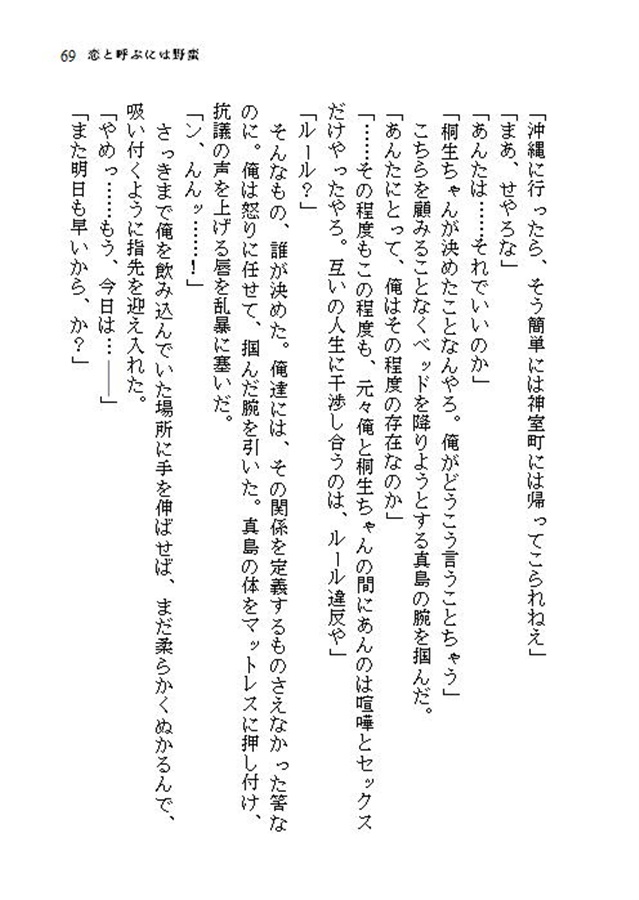 69 恋と呼ぶには野蛮
「沖縄に行ったら、そう簡単には神室町には帰ってこられねえ」
「まあ、せやろな」
「あんたは……それでいいのか」
「桐生ちゃんが決めたことなんやろ。俺がどうこう言うことちゃう」
こちらを顧みることなくベッドを降りようとする真島の腕を掴んだ。
「あんたにとって、俺はその程度の存在なのか」
「……その程度もこの程度も、元々俺と桐生ちゃんの間にあんのは喧嘩とセックス
だけやったやろ。互いの人生に干渉し合うのは、ルール違反や」
「ルール？」
そんなもの、誰が決めた。俺達には、その関係を定義するものさえなかった筈な
のに。俺は怒りに任せて、掴んだ腕を引いた。真島の体をマットレスに押し付け、
抗議の声を上げる唇を乱暴に塞いだ。
「ン、んんッ……！」
さっきまで俺を飲み込んでいた場所に手を伸ばせば、まだ柔らかくぬかるんで、
吸い付くように指先を迎え入れた。
「やめっ……もう、今日は…――」
「また明日も早いから、か？」